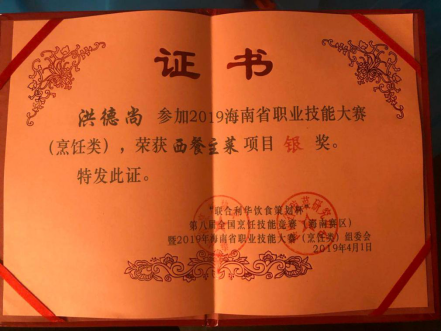 证书
洪德尚 参加2019海南省职业技能大赛
（烹饪类），荣获西餐主菜项目 银 奖。
特发此证。
“联合利华饮食策划杯”
第八届全国烹饪技能竞赛（海南赛区）
暨2019年海南省职业技能大赛（烹饪类）组委会
2019年4月1日